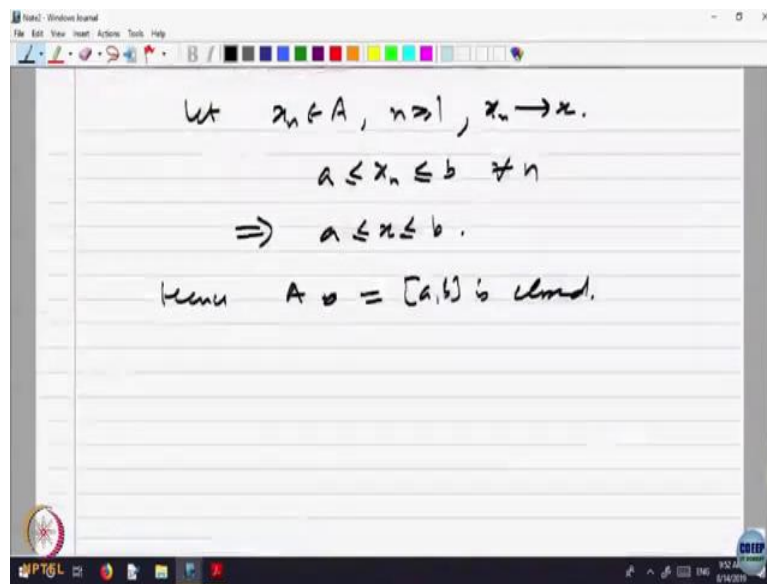 Note2 - Windows Journal
File Edit View Insert Actions Tools Help
Let xₙ ∈ A, n ≥ 1, xₙ → x.
a ≤ xₙ ≤ b ∀ n
⇒ a ≤ x ≤ b.
Hence A = [a, b] is closed.
NPTEL
CDEEP
ENG
9:52 AM
8/14/2019